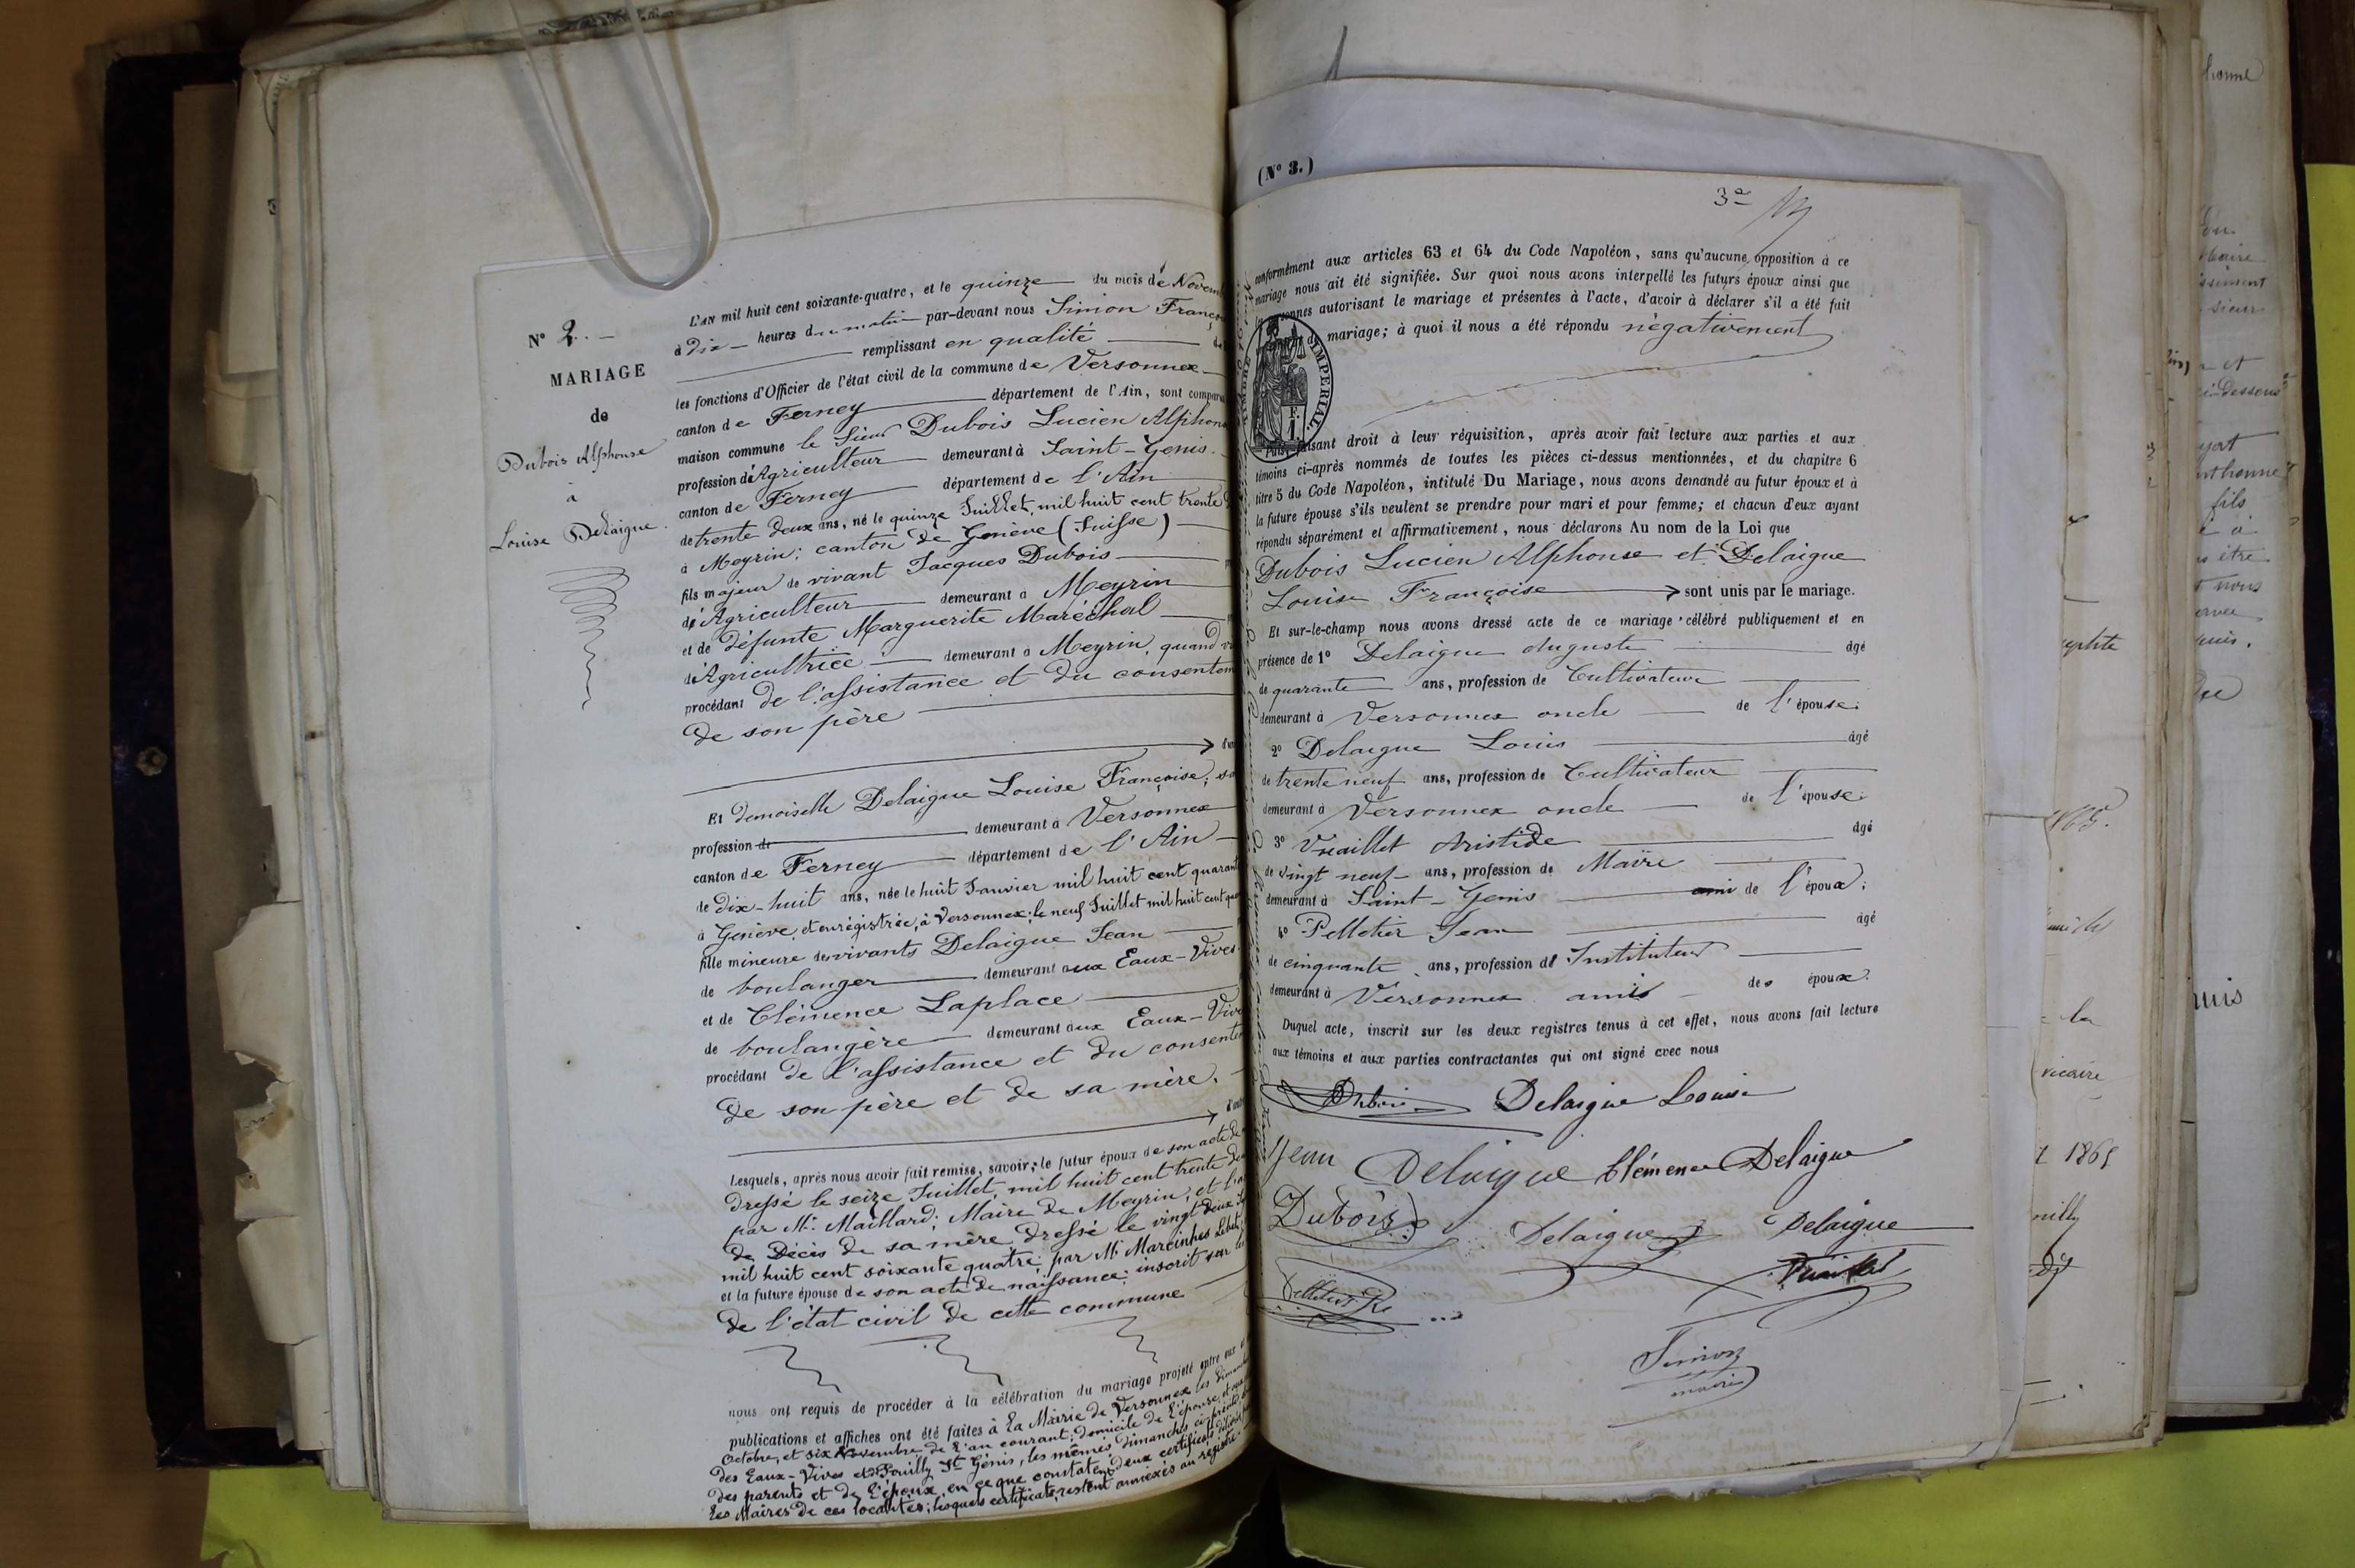 N° 2. —
MARIAGE
de
Dubois Alphonse
à
Louise Delaigue.
L'AN mil huit cent soixante-quatre, et le quinze du mois de Novem
à Dix heures du matin par-devant nous Simon Franço
remplissant en qualité de
les fonctions d'Officier de l'état civil de la commune de Versonnex
canton de Ferney département de l'Ain, sont compar
maison commune le Sieur Dubois Lucien Alphon
profession d'Agriculteur demeurant à Saint-Genis.
canton de Ferney département de l'Ain
de trente deux ans, né le quinze Juillet, mil huit cent trente
à Meyrin; canton de Genève (Suisse)
fils majeur de vivant Jacques Dubois
d'Agriculteur demeurant à Meyrin
et de défunte Marguerite Maréchal
d'Agricultrice demeurant à Meyrin, quand vi
procédant de l'assistance et du consentem
de son père
d'un
Et demoiselle Delaigue Louise Françoise; sa
profession de demeurant à Versonnex
canton de Ferney département de l'Ain
de dix-huit ans, née le huit Janvier mil huit cent quarant
à Genève, et enrégistrée, à Versonnex; le neuf Juillet mil huit cent qua
fille mineure des vivants Delaigue Jean
de boulanger demeurant aux Eaux-Vives
et de Clémence Laplace
de boulangère demeurant aux Eaux-Viv
procédant de l'assistance et du consente
de son père et de sa mère.
d'aut
Lesquels, après nous avoir fait remise, savoir; le futur époux de son acte de
dressé le seize Juillet, mil huit cent trente de
par Mr. Maillard; Maire de Meyrin, et l'a
de Décès de sa mère dressé le vingt deux
mil huit cent soixante quatre; par Mr
et la future épouse de son acte de naissance; inscrit sur
de l'état civil de cette commune
nous ont requis de procéder à la célébration du mariage projeté entre eux
publications et affiches ont été faites à la Mairie de Versonnex les Dimanch
Octobre, et six Novembre de l'an courant; domicile de l'épouse, et
des Eaux-Vives et Pouilly St Genis, les mêmes dimanches
des parents et de l'époux, en ce que constatent deux certificats
les Maires de ces localités; lesquels certificats restent annexés au registre.
(N° 3.)
3e
conformément aux articles 63 et 64 du Code Napoléon, sans qu'aucune opposition à ce
mariage nous ait été signifiée. Sur quoi nous avons interpellé les futurs époux ainsi que
personnes autorisant le mariage et présentes à l'acte, d'avoir à déclarer s'il a été fait
de mariage; à quoi il nous a été répondu négativement
TIMBRE IMPERIAL
F.
1.
Puis faisant droit à leur réquisition, après avoir fait lecture aux parties et aux
témoins ci-après nommés de toutes les pièces ci-dessus mentionnées, et du chapitre 6
titre 5 du Code Napoléon, intitulé Du Mariage, nous avons demandé au futur époux et à
la future épouse s'ils veulent se prendre pour mari et pour femme; et chacun d'eux ayant
répondu séparément et affirmativement, nous déclarons Au nom de la Loi que
Dubois Lucien Alphonse et Delaigue
Louise Françoise sont unis par le mariage.
Et sur-le-champ nous avons dressé acte de ce mariage célébré publiquement et en
présence de 1° Delaigue Auguste âgé
de quarante ans, profession de Cultivateur
demeurant à Versonnex oncle de l'épouse.
2° Delaigue Louis âgé
de trente neuf ans, profession de Cultivateur
demeurant à Versonnex oncle de l'épouse.
3° Vuaillet Aristide âgé
de vingt neuf ans, profession de Maire
demeurant à Saint-Genis ami de l'époux;
4° Pelletier Jean âgé
de cinquante ans, profession d' Instituteur
demeurant à Versonnex amis des époux.
Duquel acte, inscrit sur les deux registres tenus à cet effet, nous avons fait lecture
aux témoins et aux parties contractantes qui ont signé avec nous
Dubois Delaigue Louise
Jean Delaigue Clémence Delaigue
Dubois Delaigue Delaigue
Pelletier Vuaillet
Simon
maire